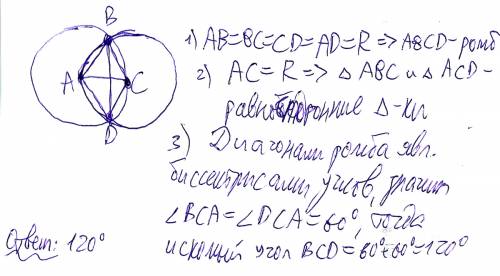 B
A
C
D
1) AB=BC=CD=AD=R => ABCD - ромб
2) AC=R => △ ABC и △ ACD -
равносторонние △-ки
3) Диагонали ромба явл.
биссектрисами углов, значит
∠BCA=∠DCA=60°, тогда
искомый угол BCD=60°+60°=120°
Ответ: 120°